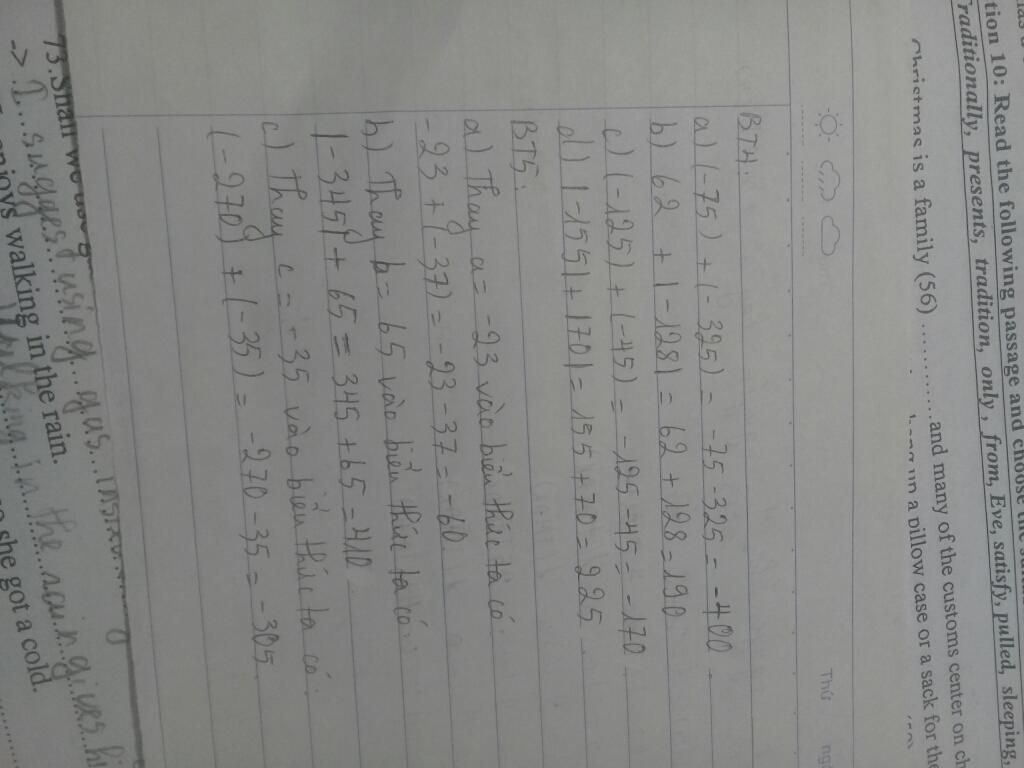 tion 10: Read the following passage and choose the
Traditionally, presents, tradition, only, from, Eve, satisfy, pulled, sleeping,
Christmas is a family (56) ............... and many of the customs center on ch
a pillow case or a sack for the
Thứ
BT4.
a) (-75) + (-325) = -75 - 325 = -400
b) 62 + |-128| = 62 + 128 = 190
c) (-125) + (-45) = -125 - 45 = -170
d) |-155| + |70| = 155 + 70 = 225
BT5:
a) Thay a = -23 vào biểu thức ta có:
-23 + (-37) = -23 - 37 = -60
b) Thay b = 65 vào biểu thức ta có:
|-345| + 65 = 345 + 65 = 410
c) Thay c = -35 vào biểu thức ta có:
(-270) + (-35) = -270 - 35 = -305
73.Shall we
-> I...sugges t using...gas
enjoys walking in the rain.
in...the
she got a cold.